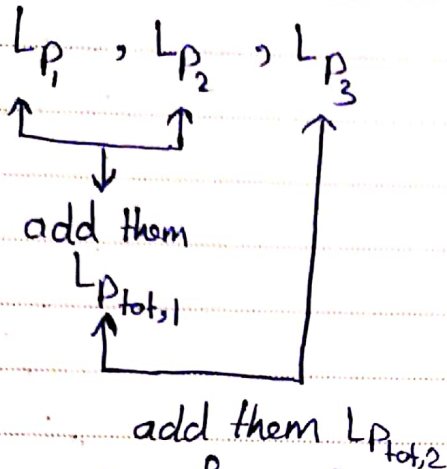 Lp₁ , Lp₂ , Lp₃
add them
Lp tot,1
add them Lp tot,2